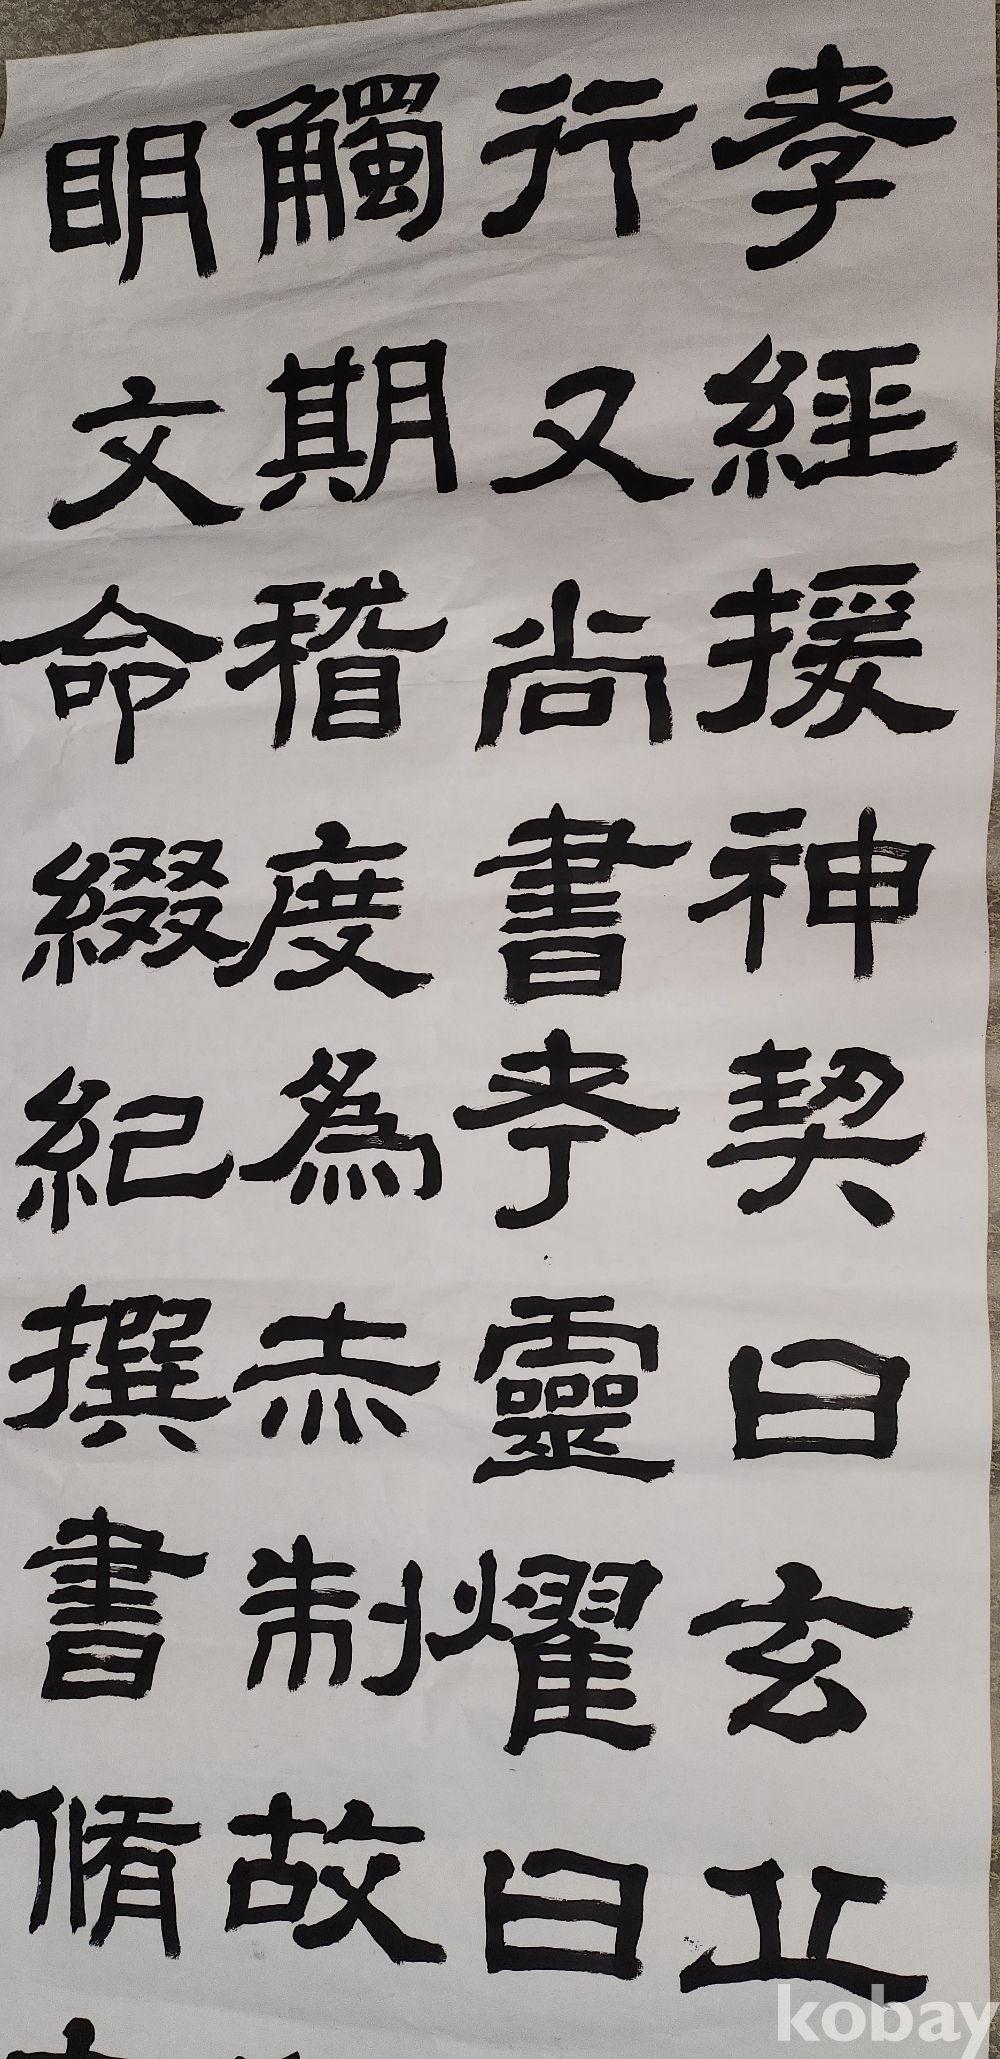 孝經援神契曰玄丘
行又尚書考靈燿曰丘
觸期稽度為赤制故
明文命綴紀撰書脩
kobay